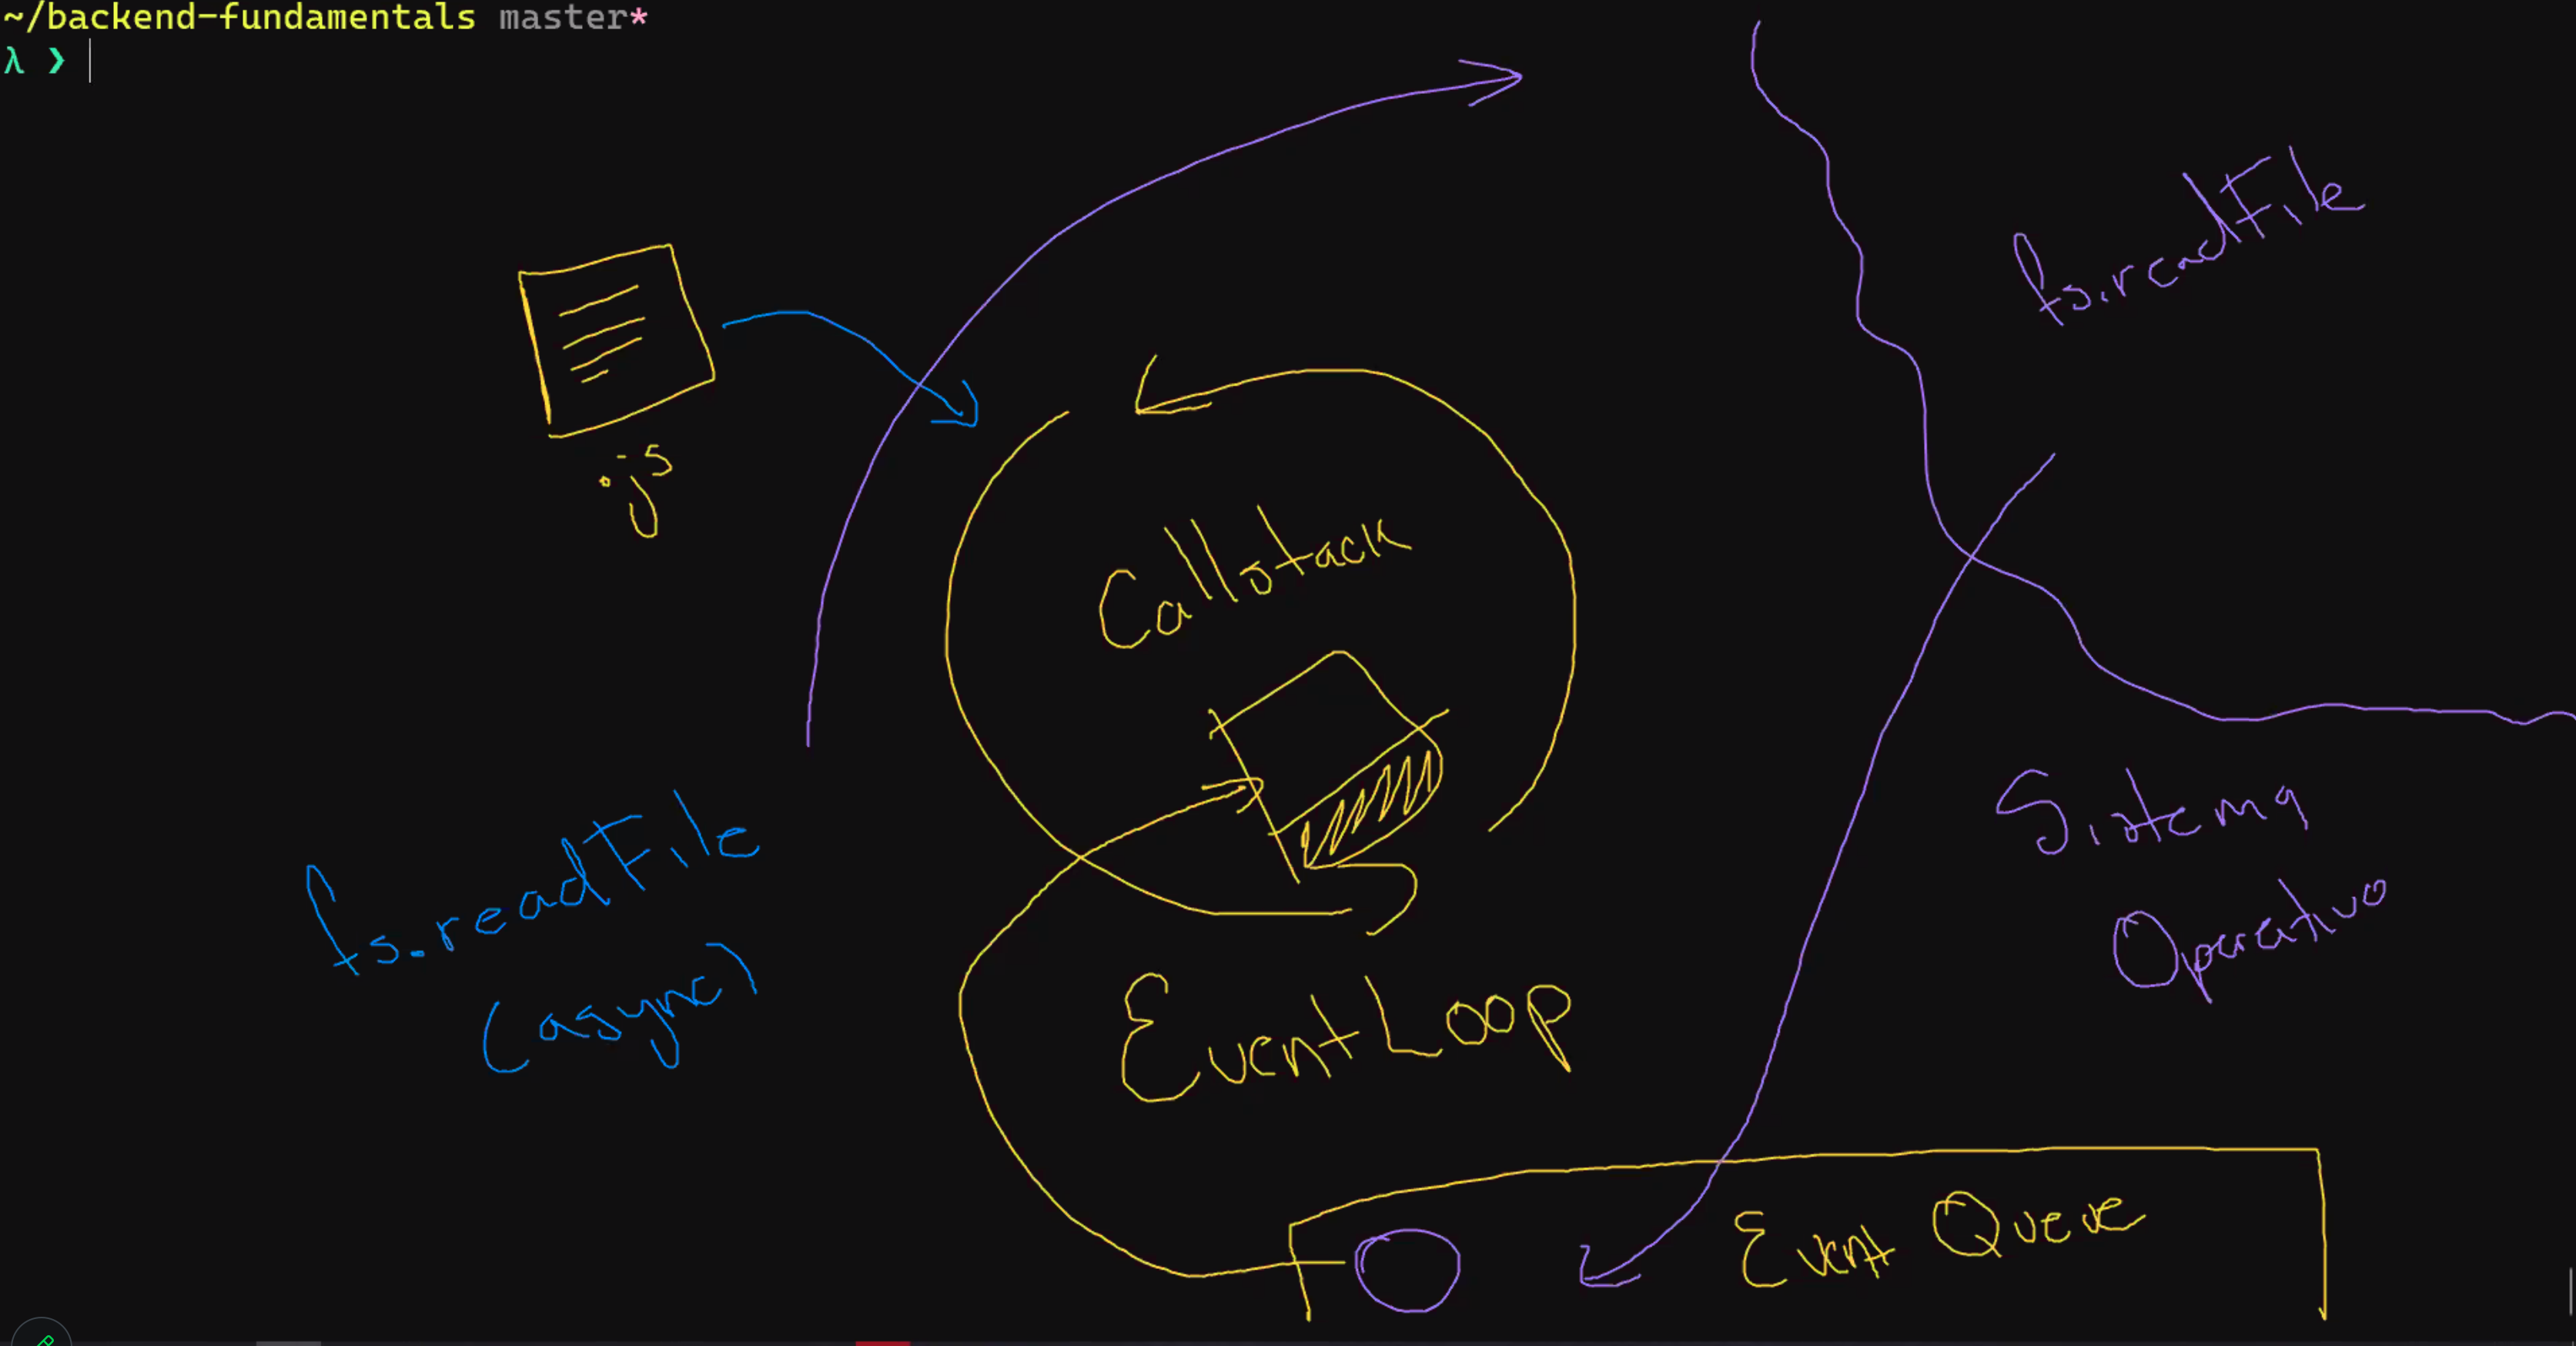 ~/backend-fundamentals master*
λ ❯
fs.readFile
.js
Callstack
fs.readFile
(async)
Sistema
Operativo
EventLoop
Event Queue